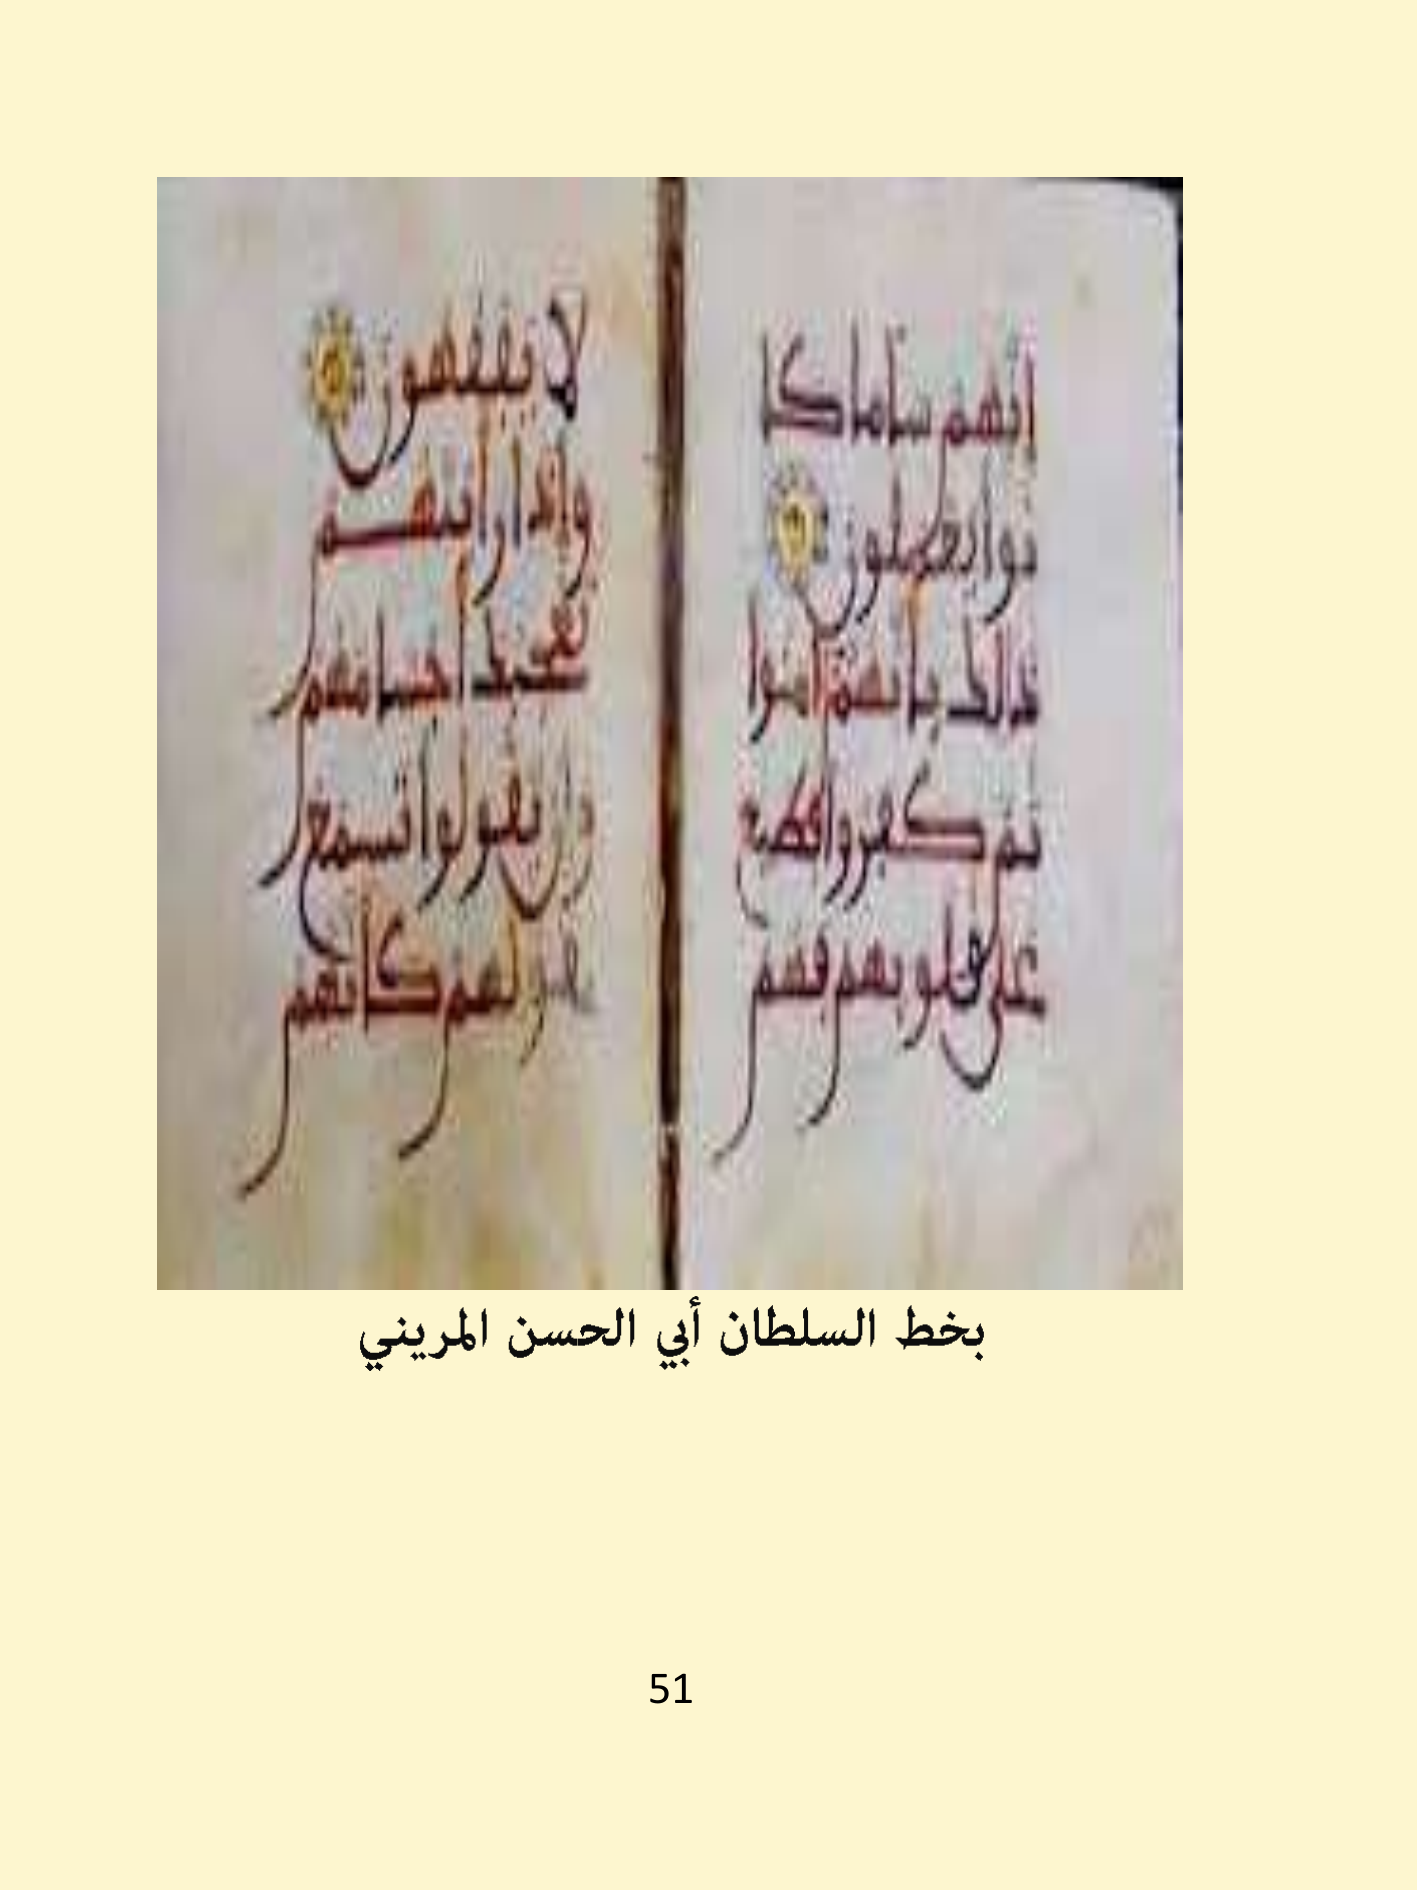 إنهم ساء ما كا
نوا يعملون
ذالك بأنهم آمنوا
ثم كفروا فطبع
على قلوبهم فهم
لا يفقهون
وإذا رأيتهم
تعجبك أجسامهم
وإن يقولوا تسمع
لقولهم كأنهم
بخط السلطان أبي الحسن المريني
51